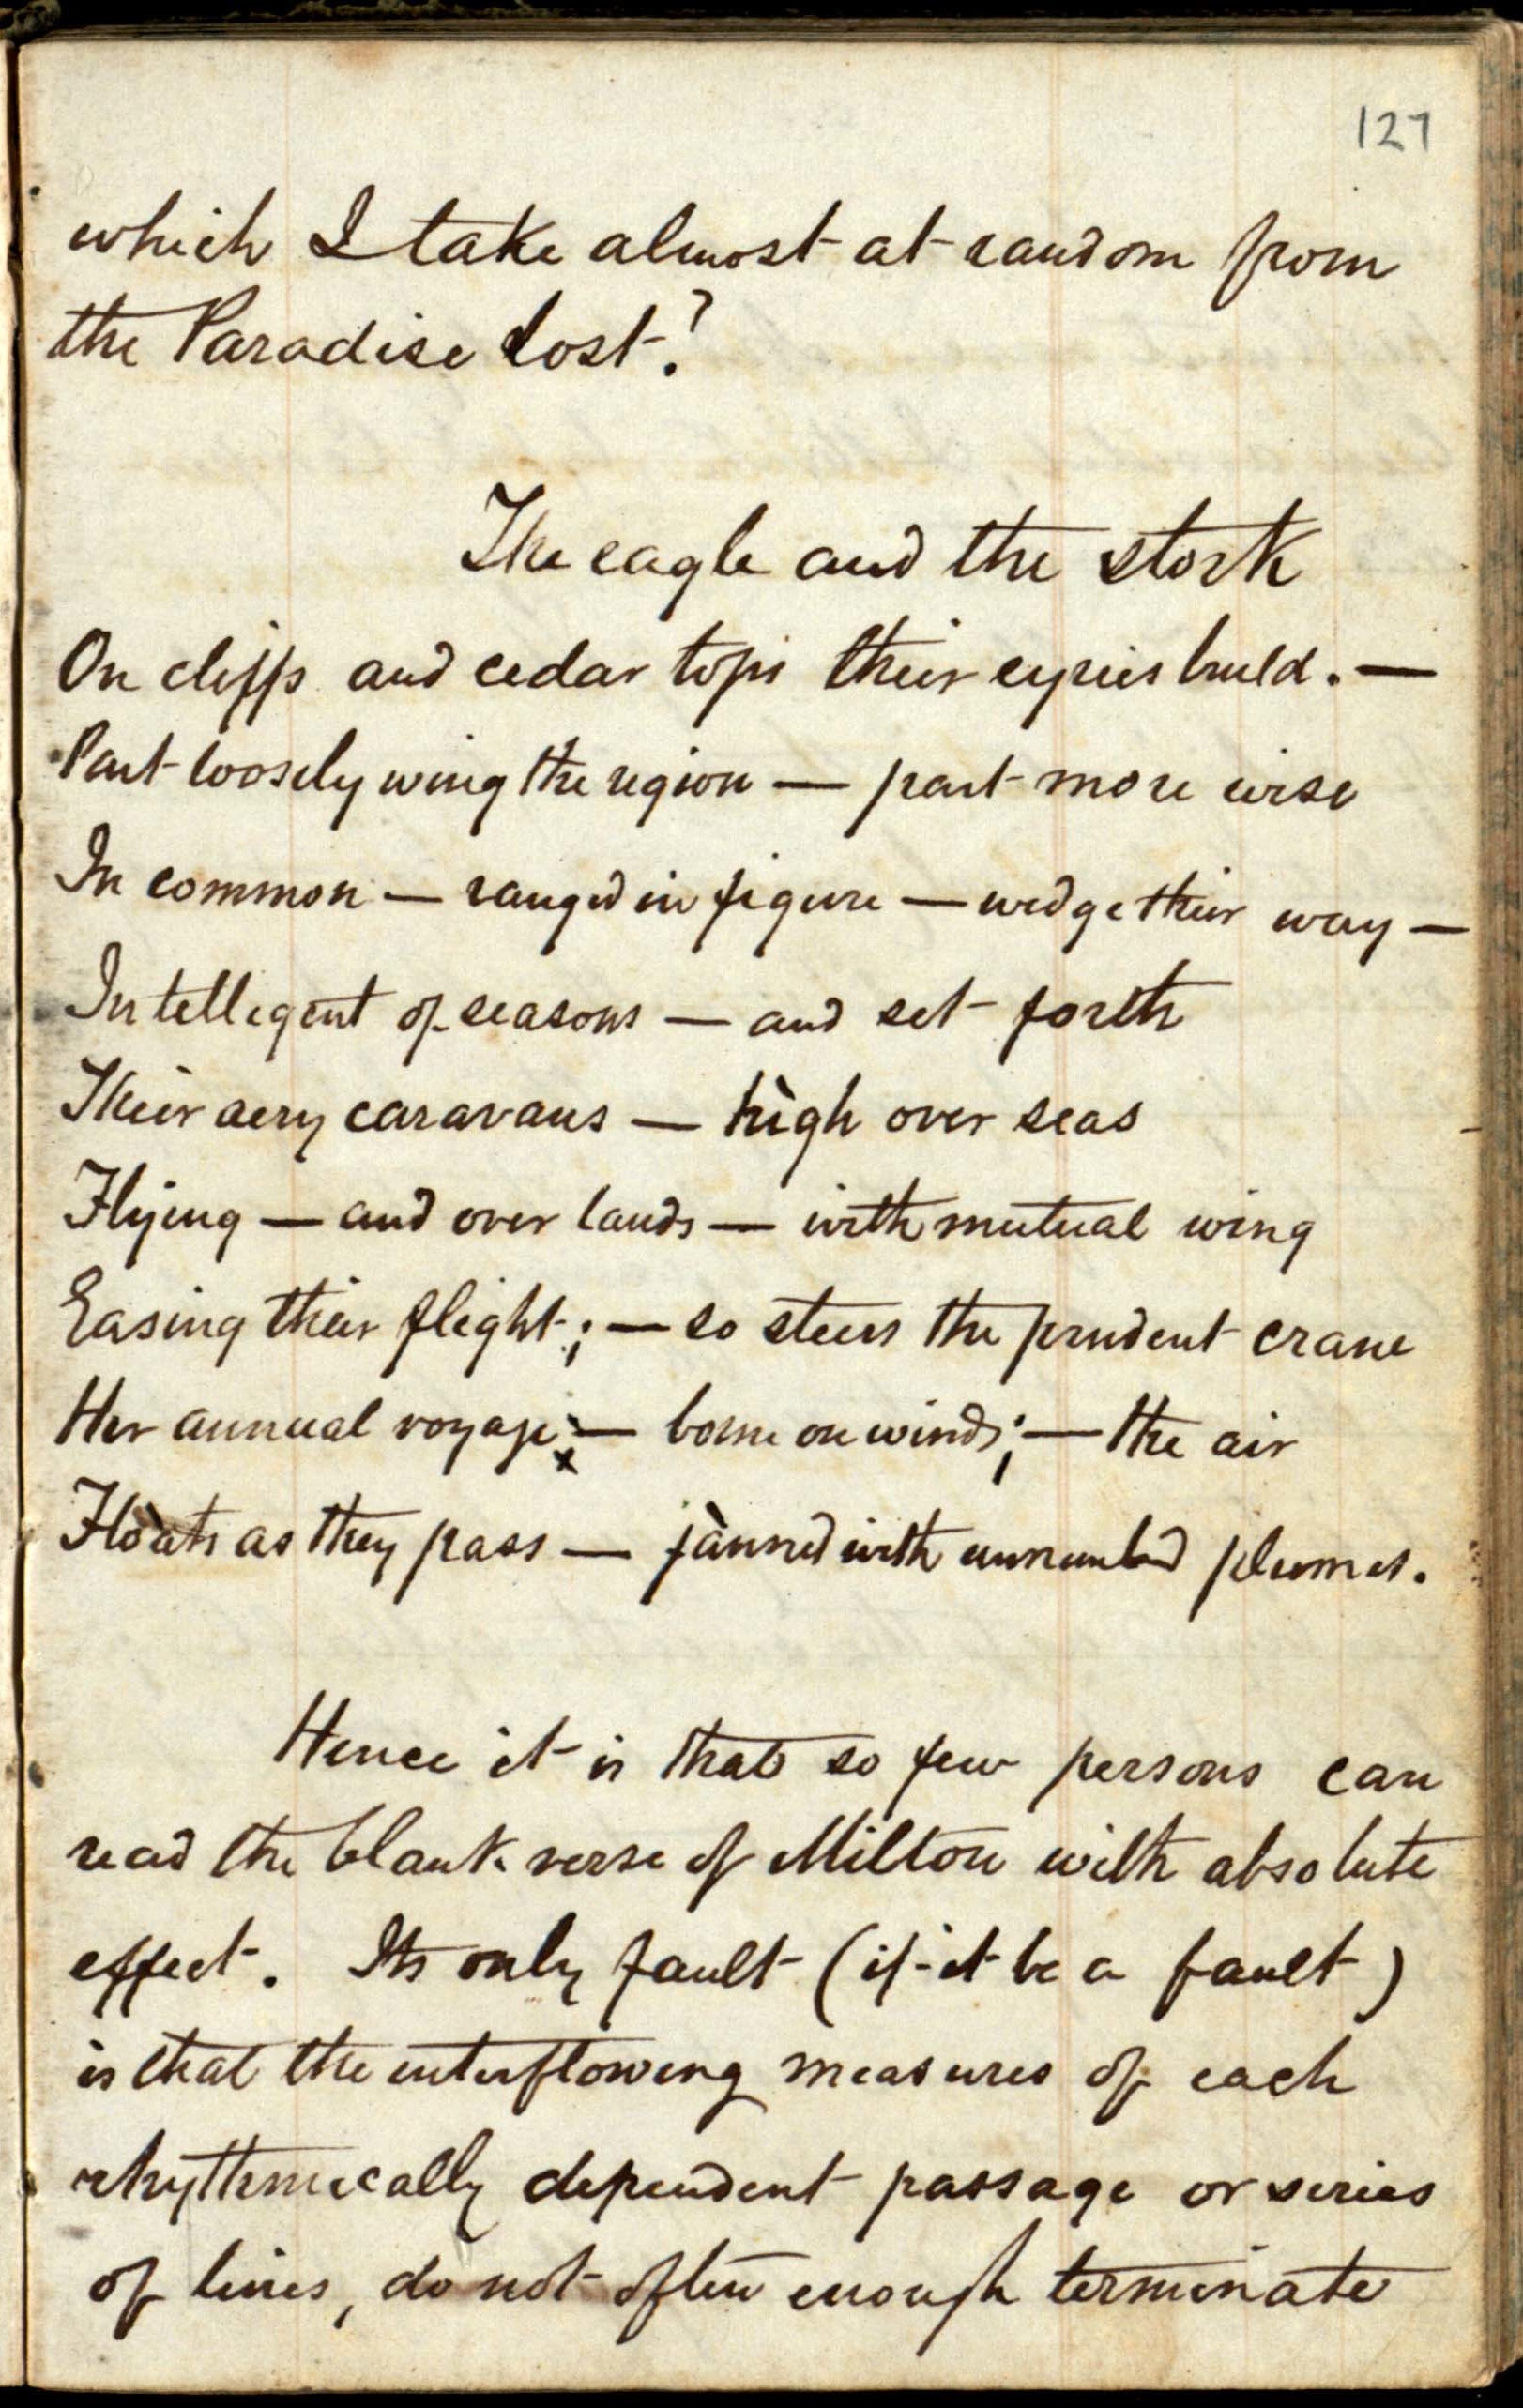 127
which I take almost at random from
the Paradise Lost?
The eagle and the stork
On cliffs and cedar tops their eyries build. —
Part loosely wing the region — part more wise
In common — ranged in figure — wedge their way —
Intelligent of seasons — and set forth
Their aery caravans — high over seas
Flying — and over lands — with mutual wing
Easing their flight; — so steers the prudent crane
Her annual voyage — borne on winds; — the air
Floats as they pass — fanned with unnumbd plumes.
Hence it is that so few persons can
read the blank verse of Milton with absolute
effect. Its only fault (if it be a fault)
is that the interflowing measures of each
rhythmically dependent passage or series
of lines, do not often enough terminate